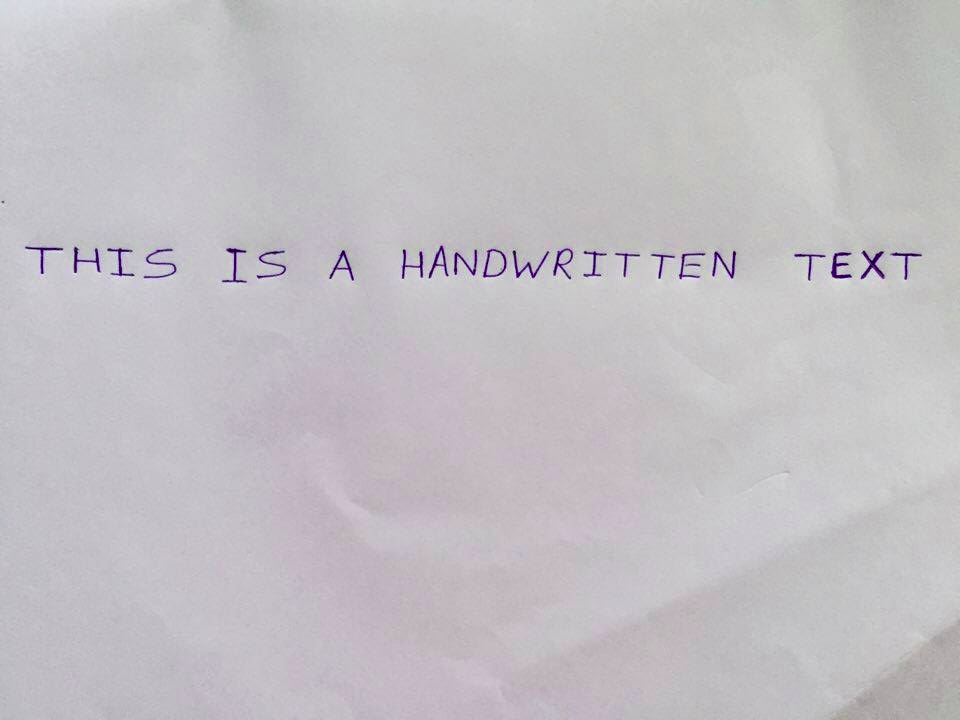 THIS IS A HANDWRITTEN TEXT